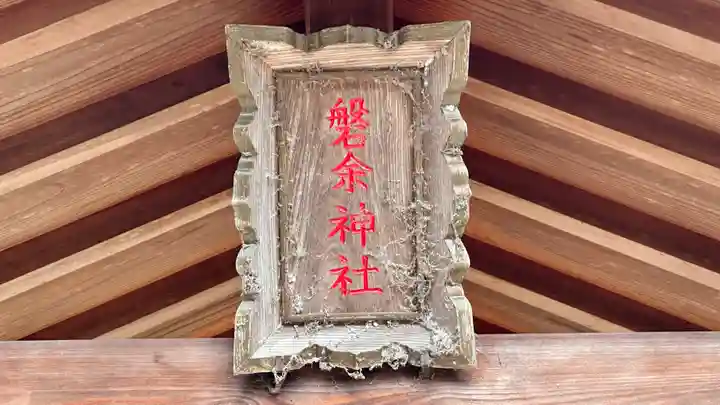 磐余神社